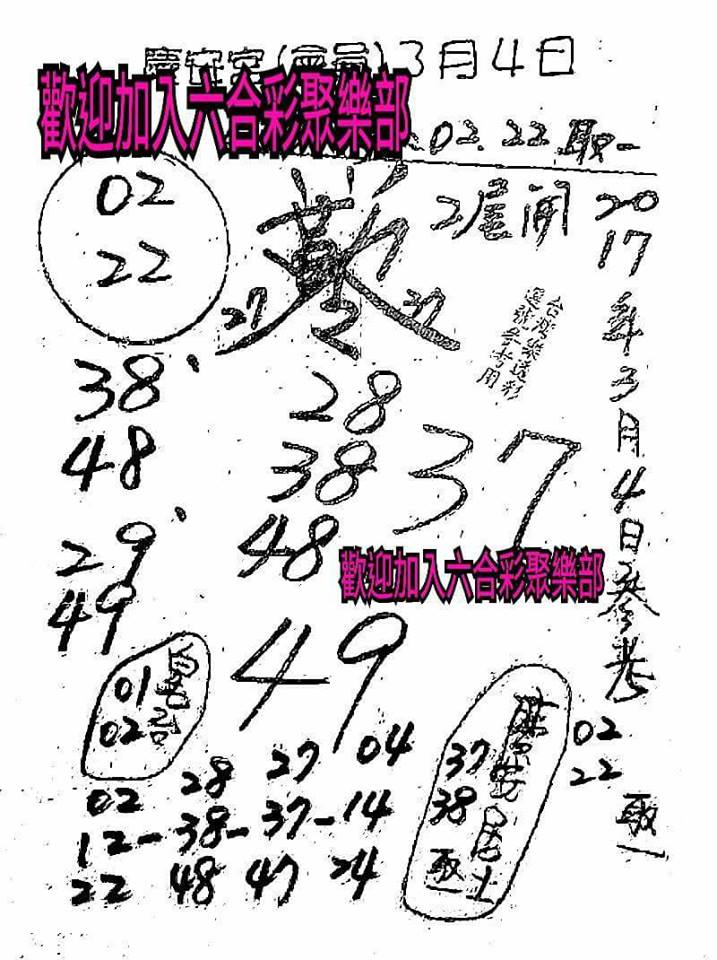 慶安宮(會員)3月4日
歡迎加入六合彩聚樂部
02.22取一
02
22
2尾開
27
37
台灣樂透彩
選號參考用
2017年3月4日參考
38
48
28
38
48
37
29
49
歡迎加入六合彩聚樂部
49
01
02
37
38
居士
取一
02
22
取一
02 28 27 04
12-38-37-14
22 48 47 24